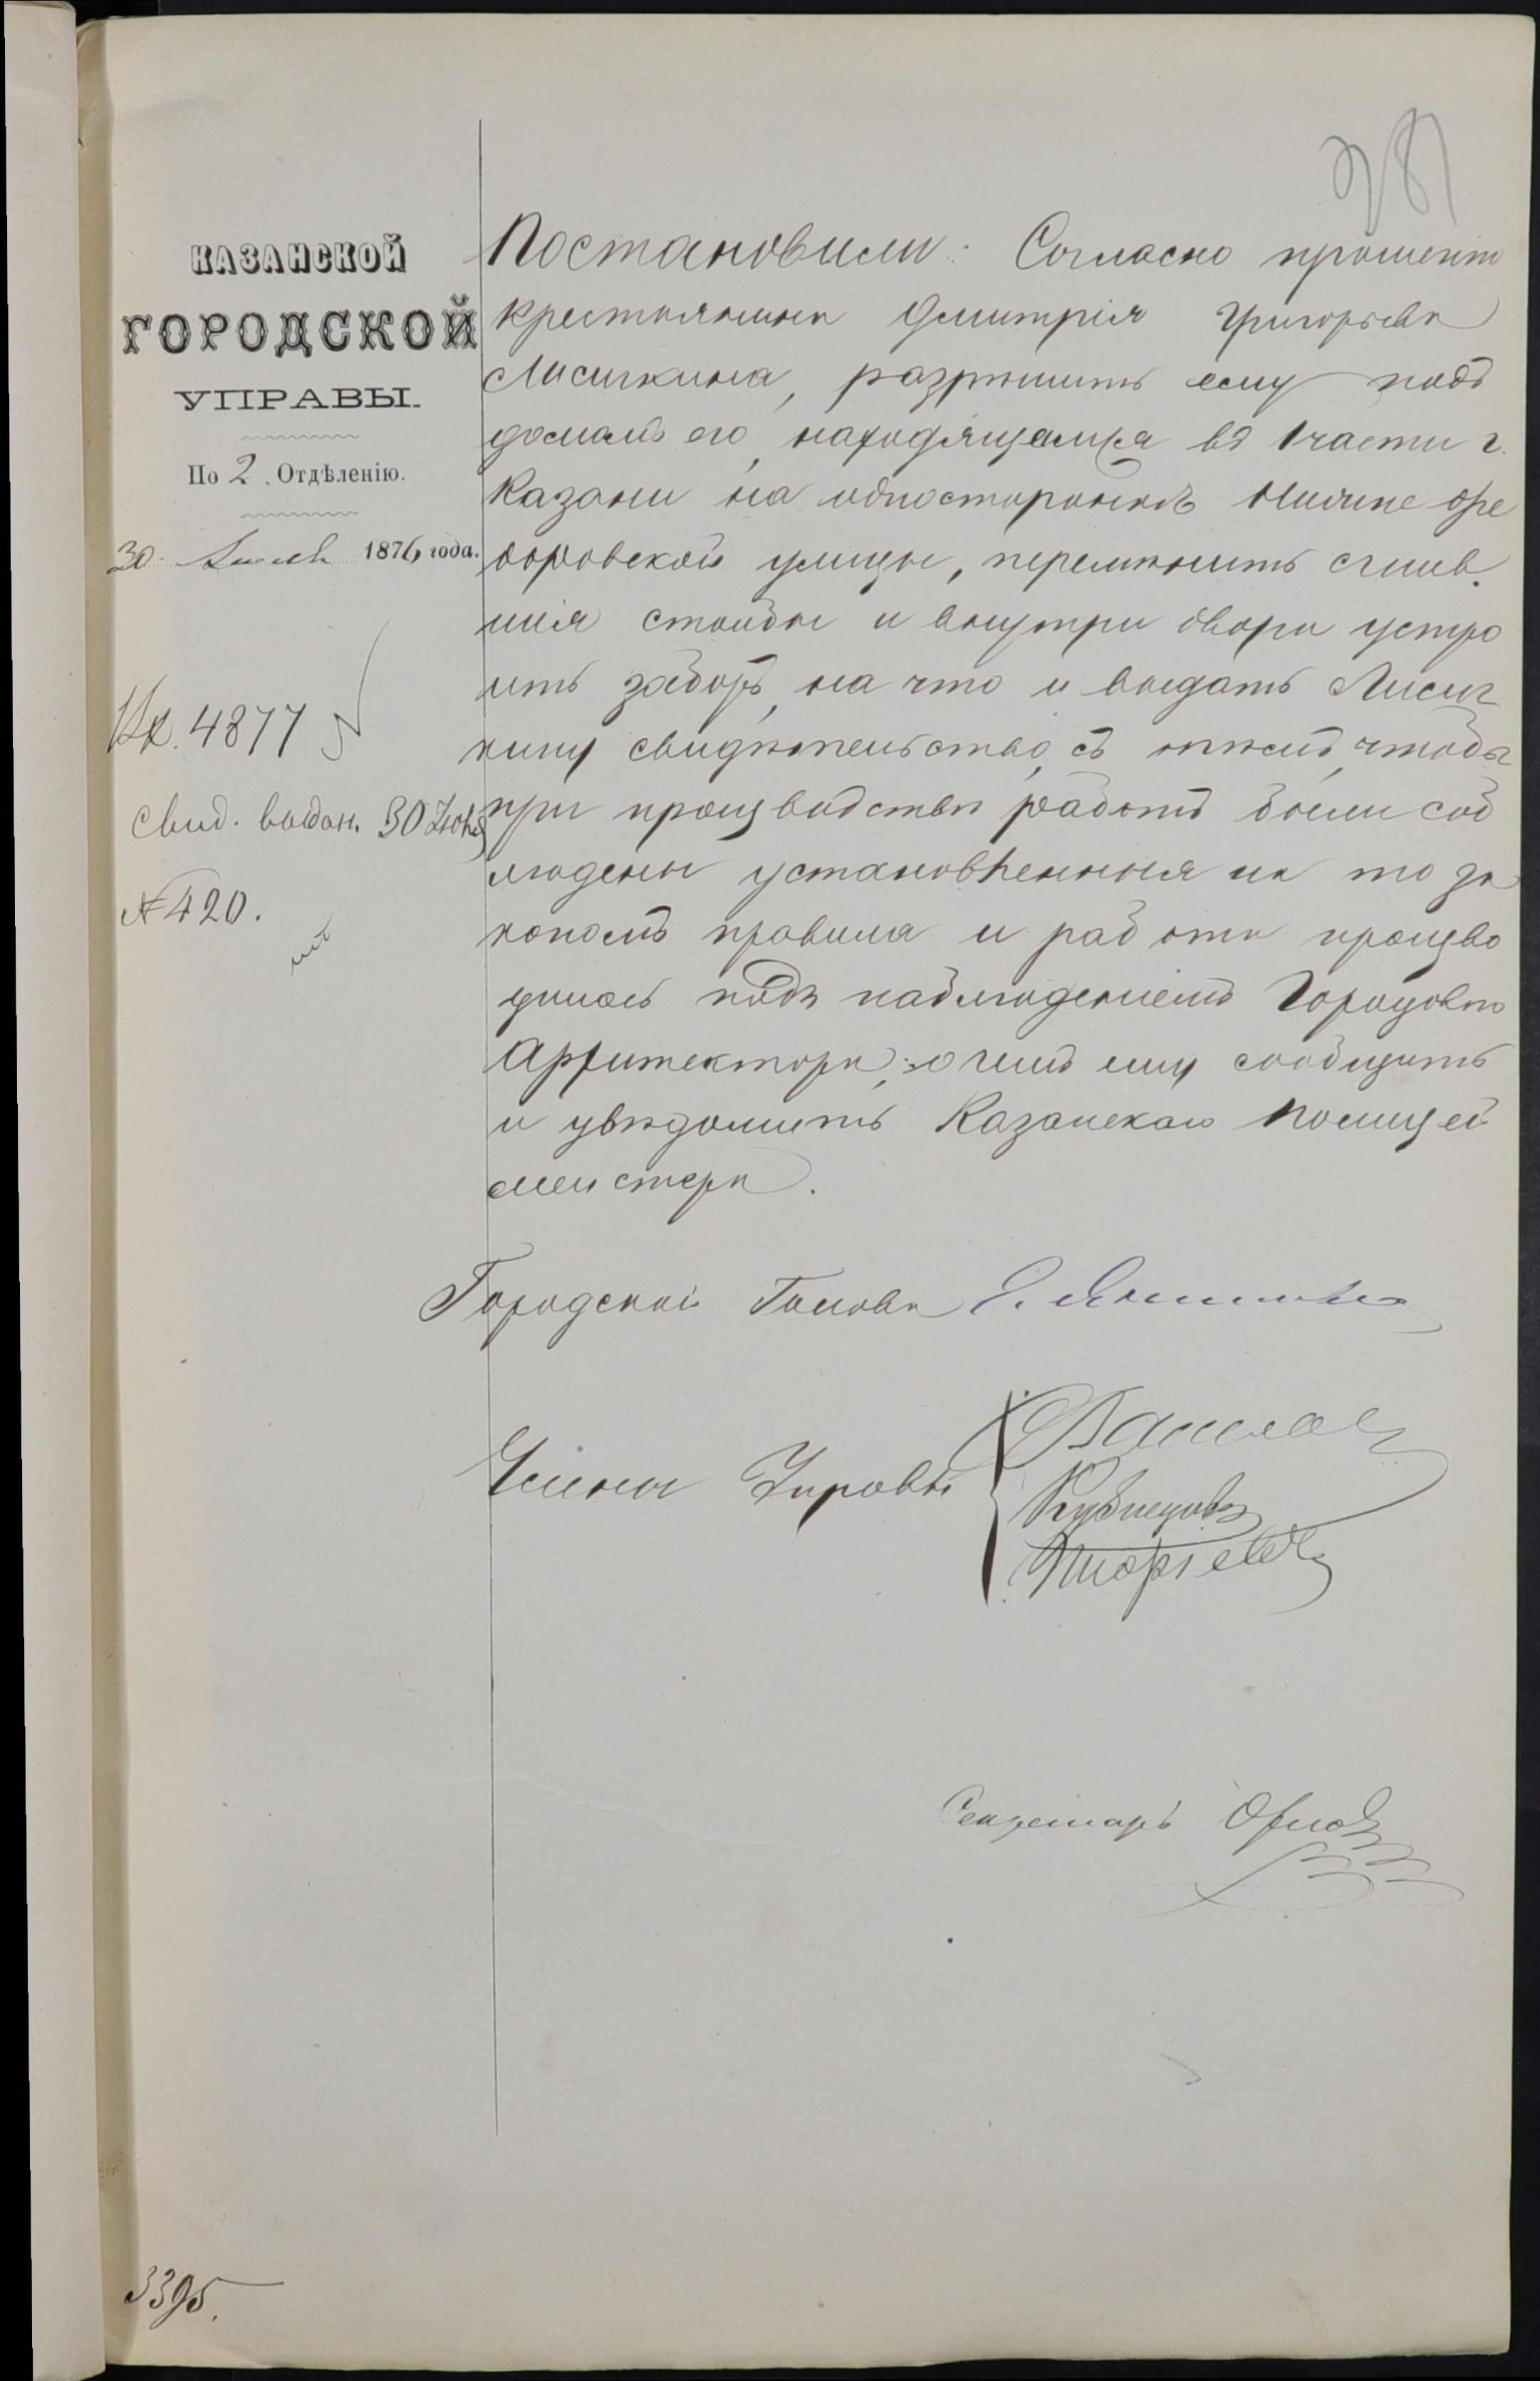 381
КАЗАНСКОЙ
ГОРОДСКОЙ
УПРАВЫ.
По 2 Отдѣленію.
30 Іюня 1876 года.
Вх. 4877
Свид. выдан. 30 Іюня
№ 420.
Постановили: Согласно прошенію
крестьянина Дмитрія Григорьева
Лисичкина, разрѣшить ему подъ
домомъ его, находящемся въ 1 части г.
Казани на односторонкѣ Нижне Фе
доровской улицы, перемѣнить сгнив
шія столбы и внутри двора устро
ить заборъ, на что и выдать Лисич
кину свидѣтельство, съ тѣмъ, чтобы
при производствѣ работъ были соб
людены установленныя на то за
кономъ правила и работа произво
дилась подъ наблюденіемъ Городоваго
Архитектора; о чемъ ему сообщить
и увѣдомить Казанскаго Полицей
мейстера.
Городской Голова Э. Янишевскій
Члены Управы
Кузнецовъ
Секретарь Орловъ
3395.